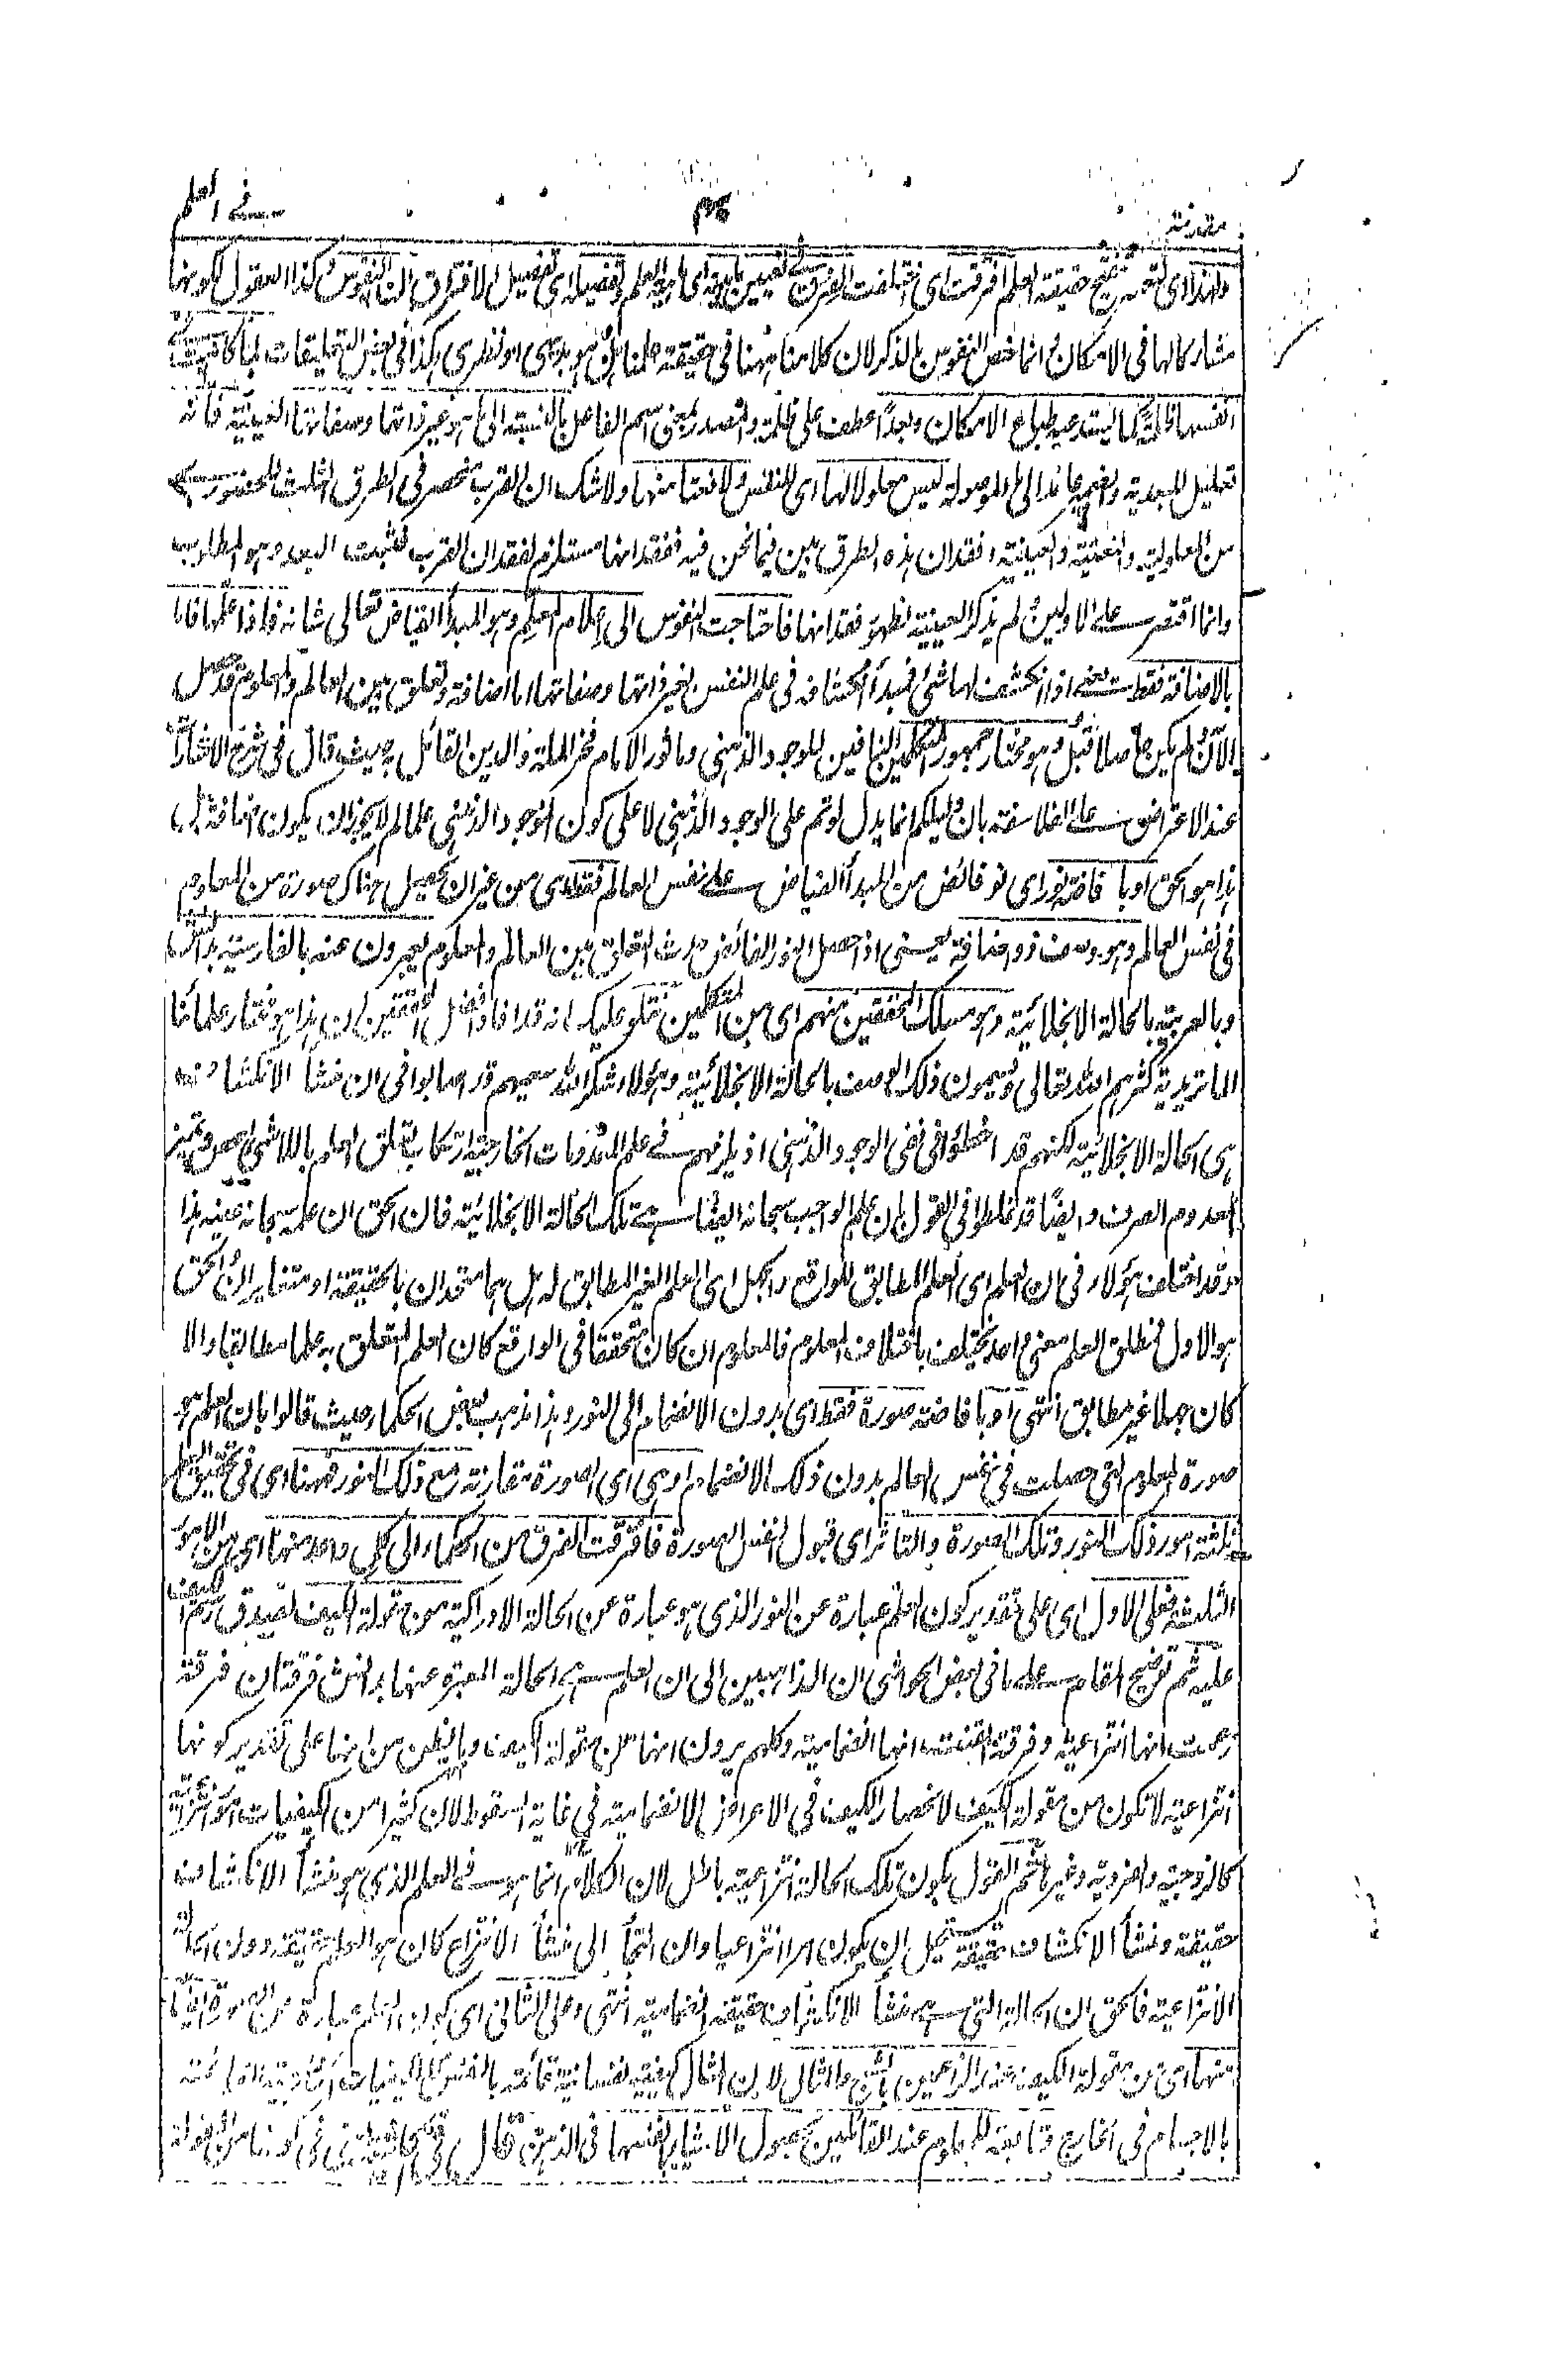 مقدمته
في العلم
مشاركا لها في الامكان وانما خص النفوس بالذكر لان كلامنا ههنا في حقيقة علمنا هل هو بديهي او نظري هكذا في بعض التعليقات لما كانت
انفسها ظلمة لما ليستدعيه طباع الامكان وبعدا عطف على ظلمة والمصدر بمعنى اسم الفاعل بالنسبة الى ما هو غير ذاتها وصفاتها العينية فانه
تعليل للبعدية والضمير عائد الى ما الموصولة ليس معلولا لها اى للنفس ولا نعتا منها ولا شك ان القرب منحصر فى الطرق الثلث للحضور
من المعلولية والنعتية والعينية وفقدان هذه الطرق بين فيما نحن فيه ففقدانها مستلزم لفقدان القرب فثبت البعد وهو المطلوب
وانما اقتصر على الاولين ولم يذكر العينية لظهور فقدانها فاحتاجت النفوس الى اعلام المعلم وهو المبدأ الفياض تعالى شانه فاذا علمها فاما
بالاضافة فقط يعنى اذا انكشف لها شئ فمبدأ انكشافه فى علم النفس بغير ذاتها وصفاتها اما اضافة وتعلق بين العالم والمعلوم قد حصل
الآن ولم يكن حاصلا قبل وهو مختار جمهور المتكلمين النافين للوجود الذهني وماثور الامام فخر الملة والدين القائل به حيث قال فى شرح الاشارات
عند الاعتراض على الفلاسفة بان دليلكم انما يدل لو تم على الوجود الذهني لا على كون الموجود الذهني علما لم لا يجوز ان يكون اضافة بل
هذا هو الحق او بافاضة نور اى نور فائض من المبدأ الفياض على نفس العالم فقط اى من غير ان يحصل هناك صورة من المعلوم
فى نفس العالم وهو وصف ذو اضافة يعنى اذا حصل النور الفائض حدث التعلق بين العالم والمعلوم يعبرون عنه بالفارسية بدانش
وبالعربية بالحالة الانجلائية وهو مسلك المحققين منهم اى من المتكلمين نتلو عليك انه قد افاد افضل المحققين ان هذا هو مختار علمائنا
الماتريدية كثرهم الله تعالى ويسمون ذلك الوصف بالحالة الانجلائية وهؤلاء شكر الله سعيهم قد اصابوا فى ان منشأ الانكشاف
هى الحالة الانجلائية لكنهم قد اخطئوا فى نفى الوجود الذهنى اذ يلزمهم فى علم المعدومات الخارجية ارتكاب تعلق العلم باللاشئ المحض وتميز
المعدوم الصرف وايضا قد غلطوا فى القول بان علم الواجب سبحانه ايضا هى تلك الحالة الانجلائية فان الحق ان علمه سبحانه عينه هذا
وقد اختلف هؤلاء فى ان العلم اى العلم المطابق للواقع والجهل اى العلم الغير المطابق له هل هما متحدان بالحقيقة او متغايران والحق
هو الاول فمطلق العلم معنى واحد يختلف باختلاف المعلوم فالمعلوم ان كان متحققا فى الواقع كان العلم المتعلق به علما مطابقا والا
كان جهلا غير مطابق انتهى او بافاضة صورة فقط اى بدون الانضمام الى النور وهذا مذهب بعض الحكماء حيث قالوا بان العلم هو
صورة المعلوم التى حصلت فى نفس العالم بدون ذلك الانضمام او هى اى الصورة مقارنة مع ذلك النور فههنا اى فى تحقيق العلم
ثلثة امور ذلك النور وتلك الصورة والتاثر اى قبول النفس الصورة فافترقت الفرق من الحكماء الى كل واحد منها اى من الامور
الثلثة فعلى الاول اى على تقدير كون العلم عبارة عن النور الذى هو عبارة عن الحالة الادراكية من مقولة الكيف لصدق رسم الكيف
عليه ثم توضيح المقام على ما فى بعض الحواشى ان الذاهبين الى ان العلم هى الحالة المعبرة عنها بدانش فرقتان فرقة
زعمت انها انتزاعية وفرقة ايقنت انها انضمامية وكلهم يرون انها من مقولة الكيف وما يظن من انها على تقدير كونها
انتزاعية لا تكون من مقولة الكيف لانحصار الكيف فى الاعراض الانضمامية فى غاية السقوط لان كثيرا من الكيفيات امور انتزاعية
كالزوجية والفردية وغيرهما ثم القول بكون تلك الحالة انتزاعية باطل لان الكلام انما هو فى العلم الذى هو منشأ الانكشاف
حقيقة ومنشأ الانكشاف حقيقة يستحيل ان يكون امرا انتزاعيا وان التجأ الى منشأ الانتزاع كان هو العلم حقيقة دون الحالة
الانتزاعية فالحق ان الحالة التى هى منشأ الانكشاف حقيقة انضمامية انتهى وعلى الثانى اى كون العلم عبارة عن الصورة ايضا
منها اى من مقولة الكيف عند الزاعمين بالشبح والمثال لان المثال كيفية نفسانية قائمة بالنفس
بالاجسام فى الخارج وتابعة للمعلوم عند القائلين بحصول الاشياء بانفسها فى الذهن قال